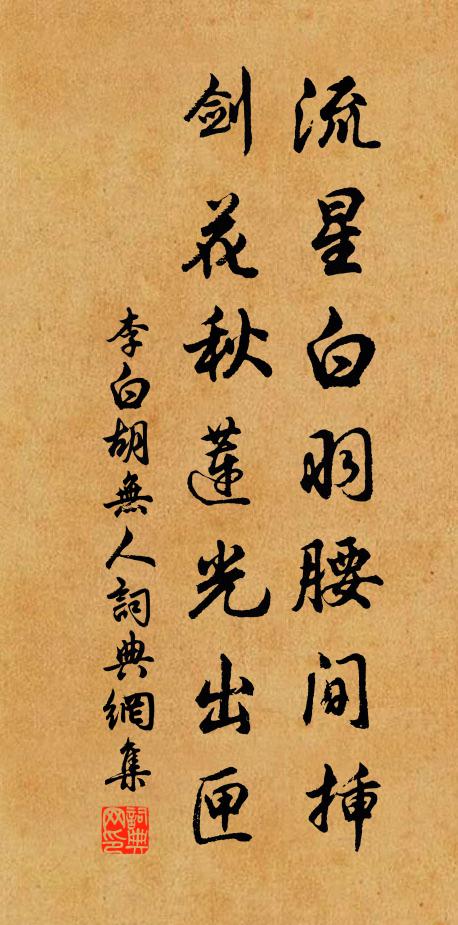 流星白羽腰間挿
劍花秋蓮光出匣
李白胡無人詞典網集
詞典网印